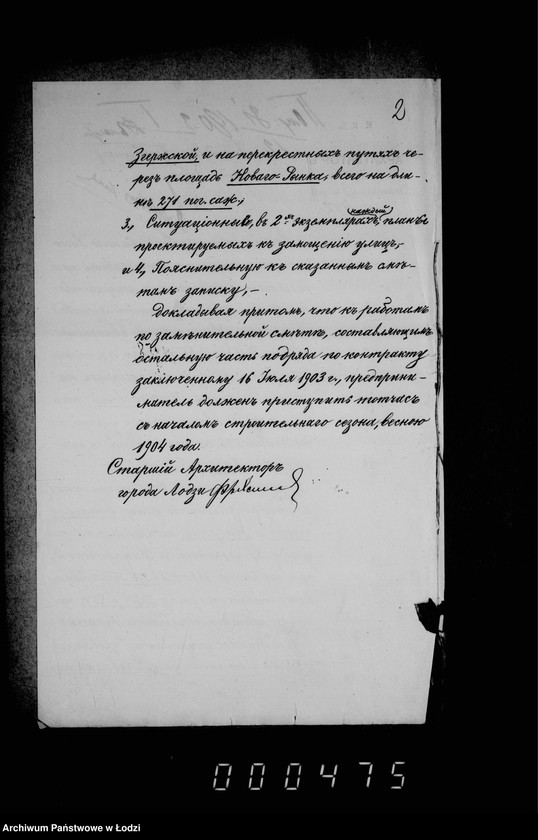 2
Згержской, и на перекрестныхъ путяхъ че-
резъ площадь Новаго-Рынка, всего на дли-
нѣ 271 пог. саж.;
3, Ситуаціонные, въ 2хъ экземплярахъ (каждый) планы
проектируемыхъ къ замощенію улицъ,-
и 4, Пояснительную къ сказаннымъ смѣ-
тамъ записку,-
Докладывая притомъ, что къ работамъ
по замѣнительной смѣтѣ, составляющимъ
остальную часть подряда по контракту
заключенному 16 Іюля 1903 г., предприни-
матель долженъ приступить тотчасъ
съ началомъ строительнаго сезона, весною
1904 года.
Старшій Архитекторъ
города Лодзи
000475
Archiwum Państwowe w Łodzi